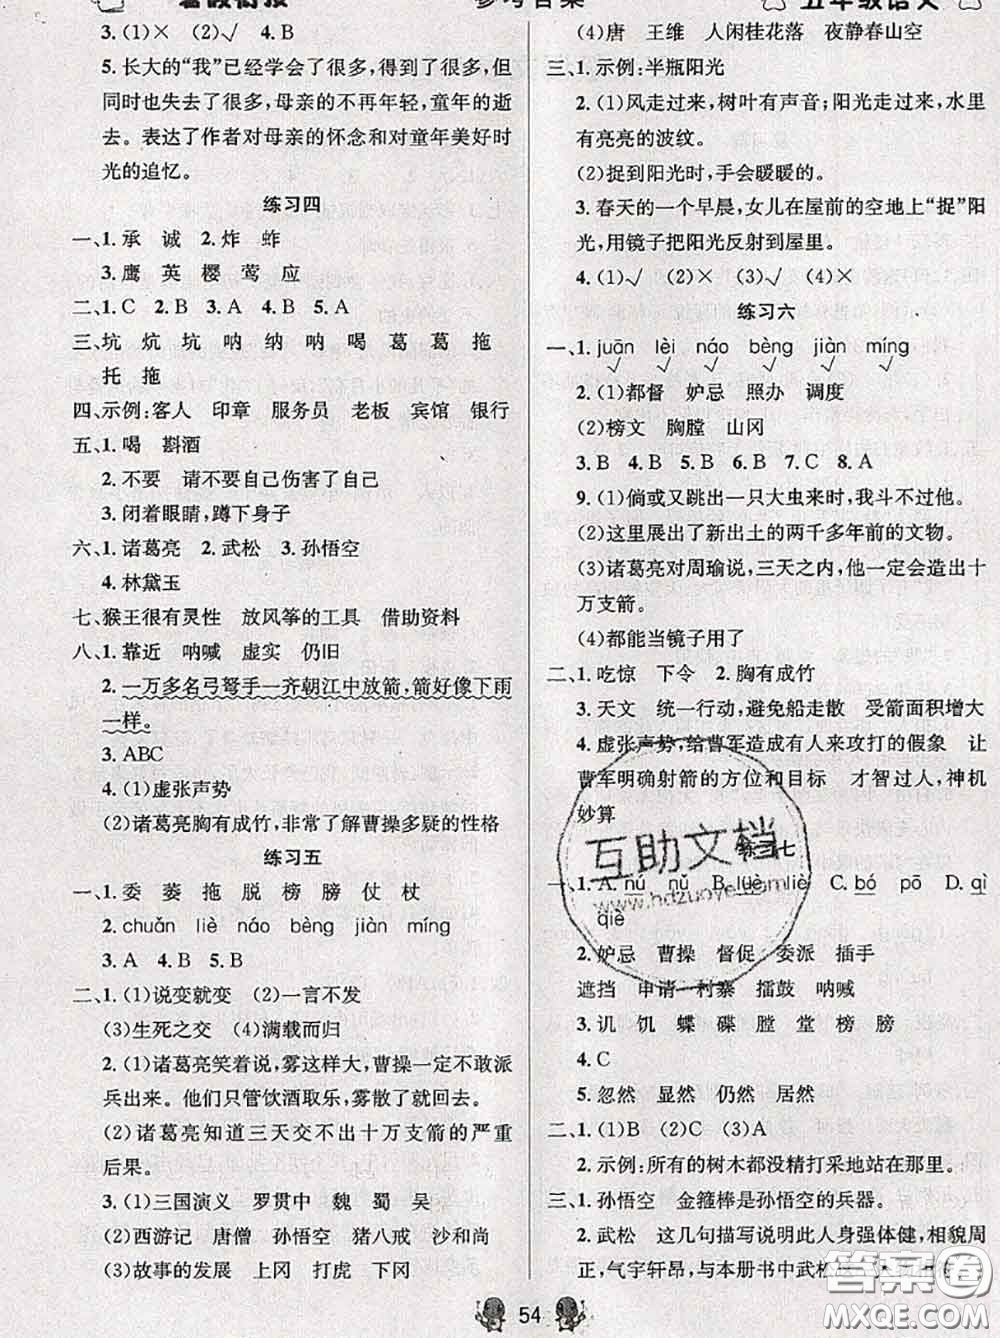 暑假衔接
参考答案
五年级语文
3.(1)× (2)√ 4.B
5.长大的“我”已经学会了很多,得到了很多,但
同时也失去了很多,母亲的不再年轻,童年的逝
去。表达了作者对母亲的怀念和对童年美好时
光的追忆。
练习四
一、1.承 诚 2.炸 蚱
3.鹰 英 樱 莺 应
二、1.C 2.B 3.A 4.B 5.A
三、坑 炕 坑 呐 纳 呐 喝 葛 葛 拖
托 拖
四、示例:客人 印章 服务员 老板 宾馆 银行
五、1.喝 斟酒
2.不要 请不要自己伤害了自己
3.闭着眼睛,蹲下身子
六、1.诸葛亮 2.武松 3.孙悟空
4.林黛玉
七、猴王很有灵性 放风筝的工具 借助资料
八、1.靠近 呐喊 虚实 仍旧
2.一万多名弓弩手一齐朝江中放箭,箭好像下雨
一样。
3.ABC
4.(1)虚张声势
(2)诸葛亮胸有成竹,非常了解曹操多疑的性格
练习五
一、1.委 萎 拖 脱 榜 膀 仗 杖
2.chuǎn liè náo bèng jiàn míng
3.A 4.B 5.B
二、1.(1)说变就变 (2)一言不发
(3)生死之交 (4)满载而归
2.(1)诸葛亮笑着说,雾这样大,曹操一定不敢派
兵出来。他们只管饮酒取乐,雾散了就回去。
(2)诸葛亮知道三天交不出十万支箭的严重
后果。
3.(1)三国演义 罗贯中 魏 蜀 吴
(2)西游记 唐僧 孙悟空 猪八戒 沙和尚
(3)故事的发展 上冈 打虎 下冈
(4)唐 王维 人闲桂花落 夜静春山空
三、1.示例:半瓶阳光
2.(1)风走过来,树叶有声音;阳光走过来,水里
有亮亮的波纹。
(2)捉到阳光时,手会暖暖的。
3.春天的一个早晨,女儿在屋前的空地上“捉”阳
光,用镜子把阳光反射到屋里。
4.(1)√ (2)× (3)√ (4)×
练习六
一、1.juān lèi náo bèng jiàn míng
√ √ √ √ √ √
2.(1)都督 妒忌 照办 调度
(2)榜文 胸膛 山冈
3.B 4.B 5.A 6.B 7.C 8.A
9.(1)倘或又跳出一只大虫来时,我斗不过他。
(2)这里展出了新出土的两千多年前的文物。
(3)诸葛亮对周瑜说,三天之内,他一定会造出十
万支箭。
(4)都能当镜子用了
二、1.吃惊 下令 2.胸有成竹
3.天文 统一行动,避免船走散 受箭面积增大
4.虚张声势,给曹军造成有人来攻打的假象 让
曹军明确射箭的方位和目标 才智过人,神机
妙算
练习七
一、1.A.nú nǔ B.lüè liè C.bó pō D.qì
qiè
2.妒忌 曹操 督促 委派 插手
遮挡 申请 村寨 擂鼓 呐喊
3.讥 饥 蝶 碟 膛 堂 榜 膀
4.C
5.忽然 显然 仍然 居然
二、1.(1)B (2)C (3)A
2.示例:所有的树木都没精打采地站在那里。
三、1.孙悟空 金箍棒是孙悟空的兵器。
2.武松 这几句描写说明此人身强体健,相貌周
正,气宇轩昂,与本册书中武松
54
互助文档
www.hdzuoye.com
答案圈
MXQE.COM